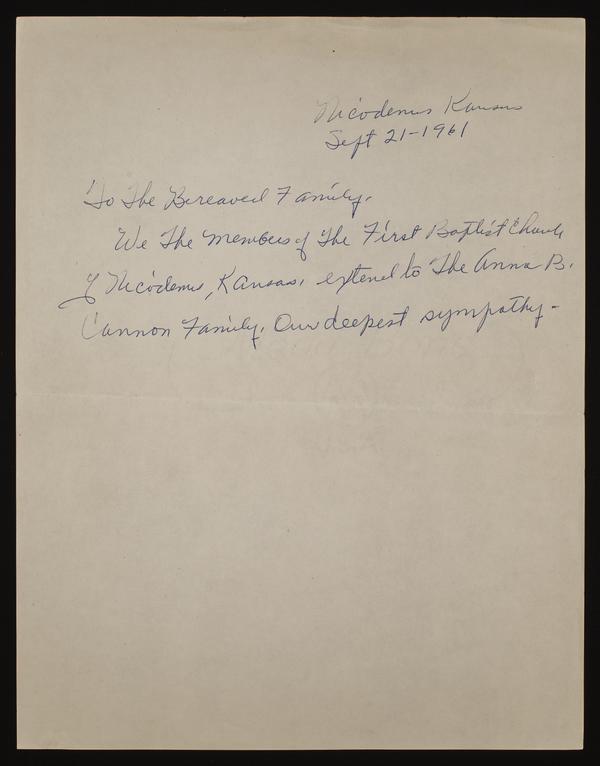 Nicodemus Kansas
Sept 21-1961
To The Bereaved Family.
We The Members of The First Baptist Church
of Nicodemus, Kansas. extend to The Anna B.
Cannon Family. Our deepest sympathy-